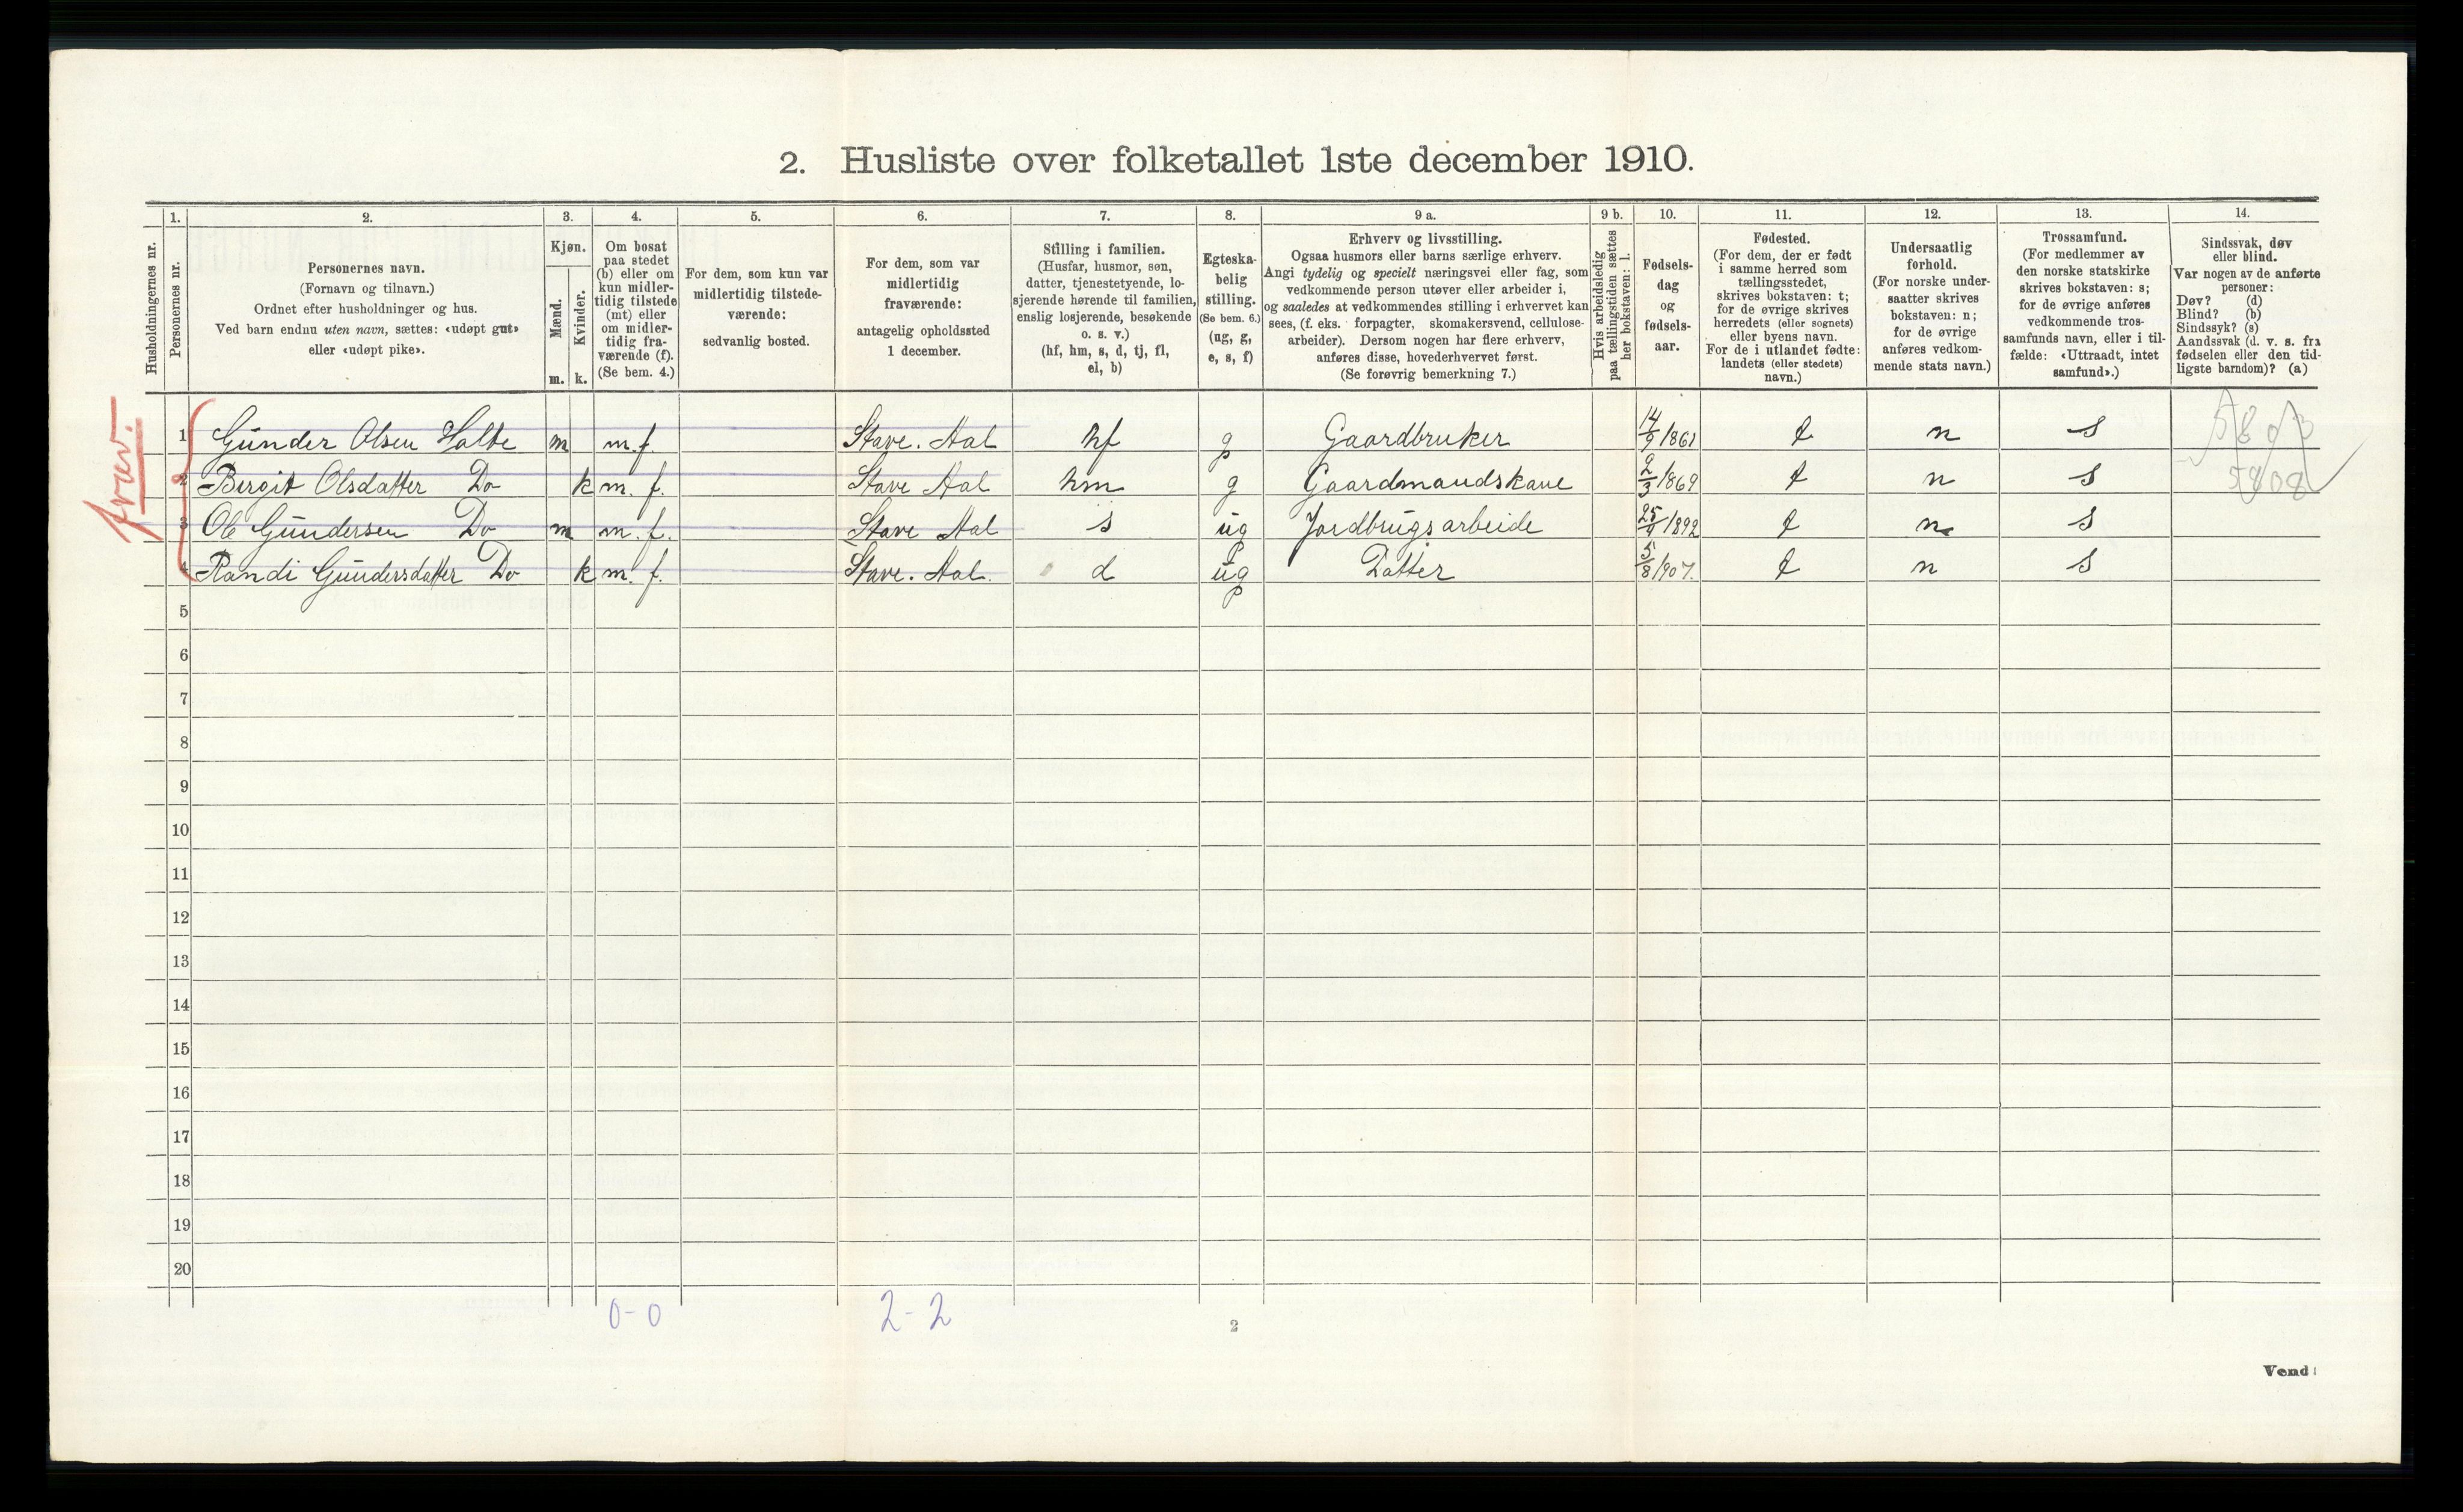 2. Husliste over folketallet 1ste december 1910.
1. 2. 3. 4. 5. 6. 7. 8. 9 a. 9 b. 10. 11. 12. 13. 14.
Husholdningernes nr.
Personernes nr.
Personernes navn.
(Fornavn og tilnavn.)
Ordnet efter husholdninger og hus.
Ved barn endnu uten navn, sættes: «udøpt gut»
eller «udøpt pike».
Kjøn.
Mænd.
Kvinder.
m. k.
Om bosat
paa stedet
(b) eller om
kun midler-
tidig tilstede
(mt) eller
om midler-
tidig fra-
værende (f).
(Se bem. 4.)
For dem, som kun var
midlertidig tilstede-
værende:
sedvanlig bosted.
For dem, som var
midlertidig
fraværende:
antagelig opholdssted
1 december.
Stilling i familien.
(Husfar, husmor, søn,
datter, tjenestetyende, lo-
sjerende hørende til familien,
enslig losjerende, besøkende
o. s. v.)
(hf, hm, s, d, tj, fl,
el, b)
Egteska-
belig
stilling.
(Se bem. 6.)
(ug, g,
e, s, f)
Erhverv og livsstilling.
Ogsaa husmors eller barns særlige erhverv.
Angi tydelig og specielt næringsvei eller fag, som
vedkommende person utøver eller arbeider i,
og saaledes at vedkommendes stilling i erhvervet kan
sees, (f. eks. forpagter, skomakersvend, cellulose-
arbeider). Dersom nogen har flere erhverv,
anføres disse, hovederhvervet først.
(Se forøvrig bemerkning 7.)
Hvis arbeidsledig
paa tællingstiden sættes
her bokstaven: l.
Fødsels-
dag
og
fødsels-
aar.
Fødested.
(For dem, der er født
i samme herred som
tællingsstedet,
skrives bokstaven: t;
for de øvrige skrives
herredets (eller sognets)
eller byens navn.
For de i utlandet fødte:
landets (eller stedets)
navn.)
Undersaatlig
forhold.
(For norske under-
saatter skrives
bokstaven: n;
for de øvrige
anføres vedkom-
mende stats navn.)
Trossamfund.
(For medlemmer av
den norske statskirke
skrives bokstaven: s;
for de øvrige anføres
vedkommende tros-
samfunds navn, eller i til-
fælde: «Uttraadt, intet
samfund».)
Sindssvak, døv
eller blind.
Var nogen av de anførte
personer:
Døv? (d)
Blind? (b)
Sindssyk? (s)
Aandssvak (d. v. s. fra
fødselen eller den tid-
ligste barndom)? (a)
frav.
1 Gunder Olsen Holte m m. f. Stave. Aal hf g Gaardbruker 14/9 1861 t n s
2 Bergit Olsdatter Do k m. f. Stave Aal hm g Gaardmandskane 2/3 1869 t n s 5808
3 Ole Gundersen Do m m. f. Stave Aal s ug Jordbrugsarbeide 25/9 1892 t n s
4 Randi Gundersdatter Do k m. f. Stave. Aal. d ug Datter 5/8 1907. t n s
5
6
7
8
9
10
11
12
13
14
15
16
17
18
19
20
0-0 2-2
2
Vend!